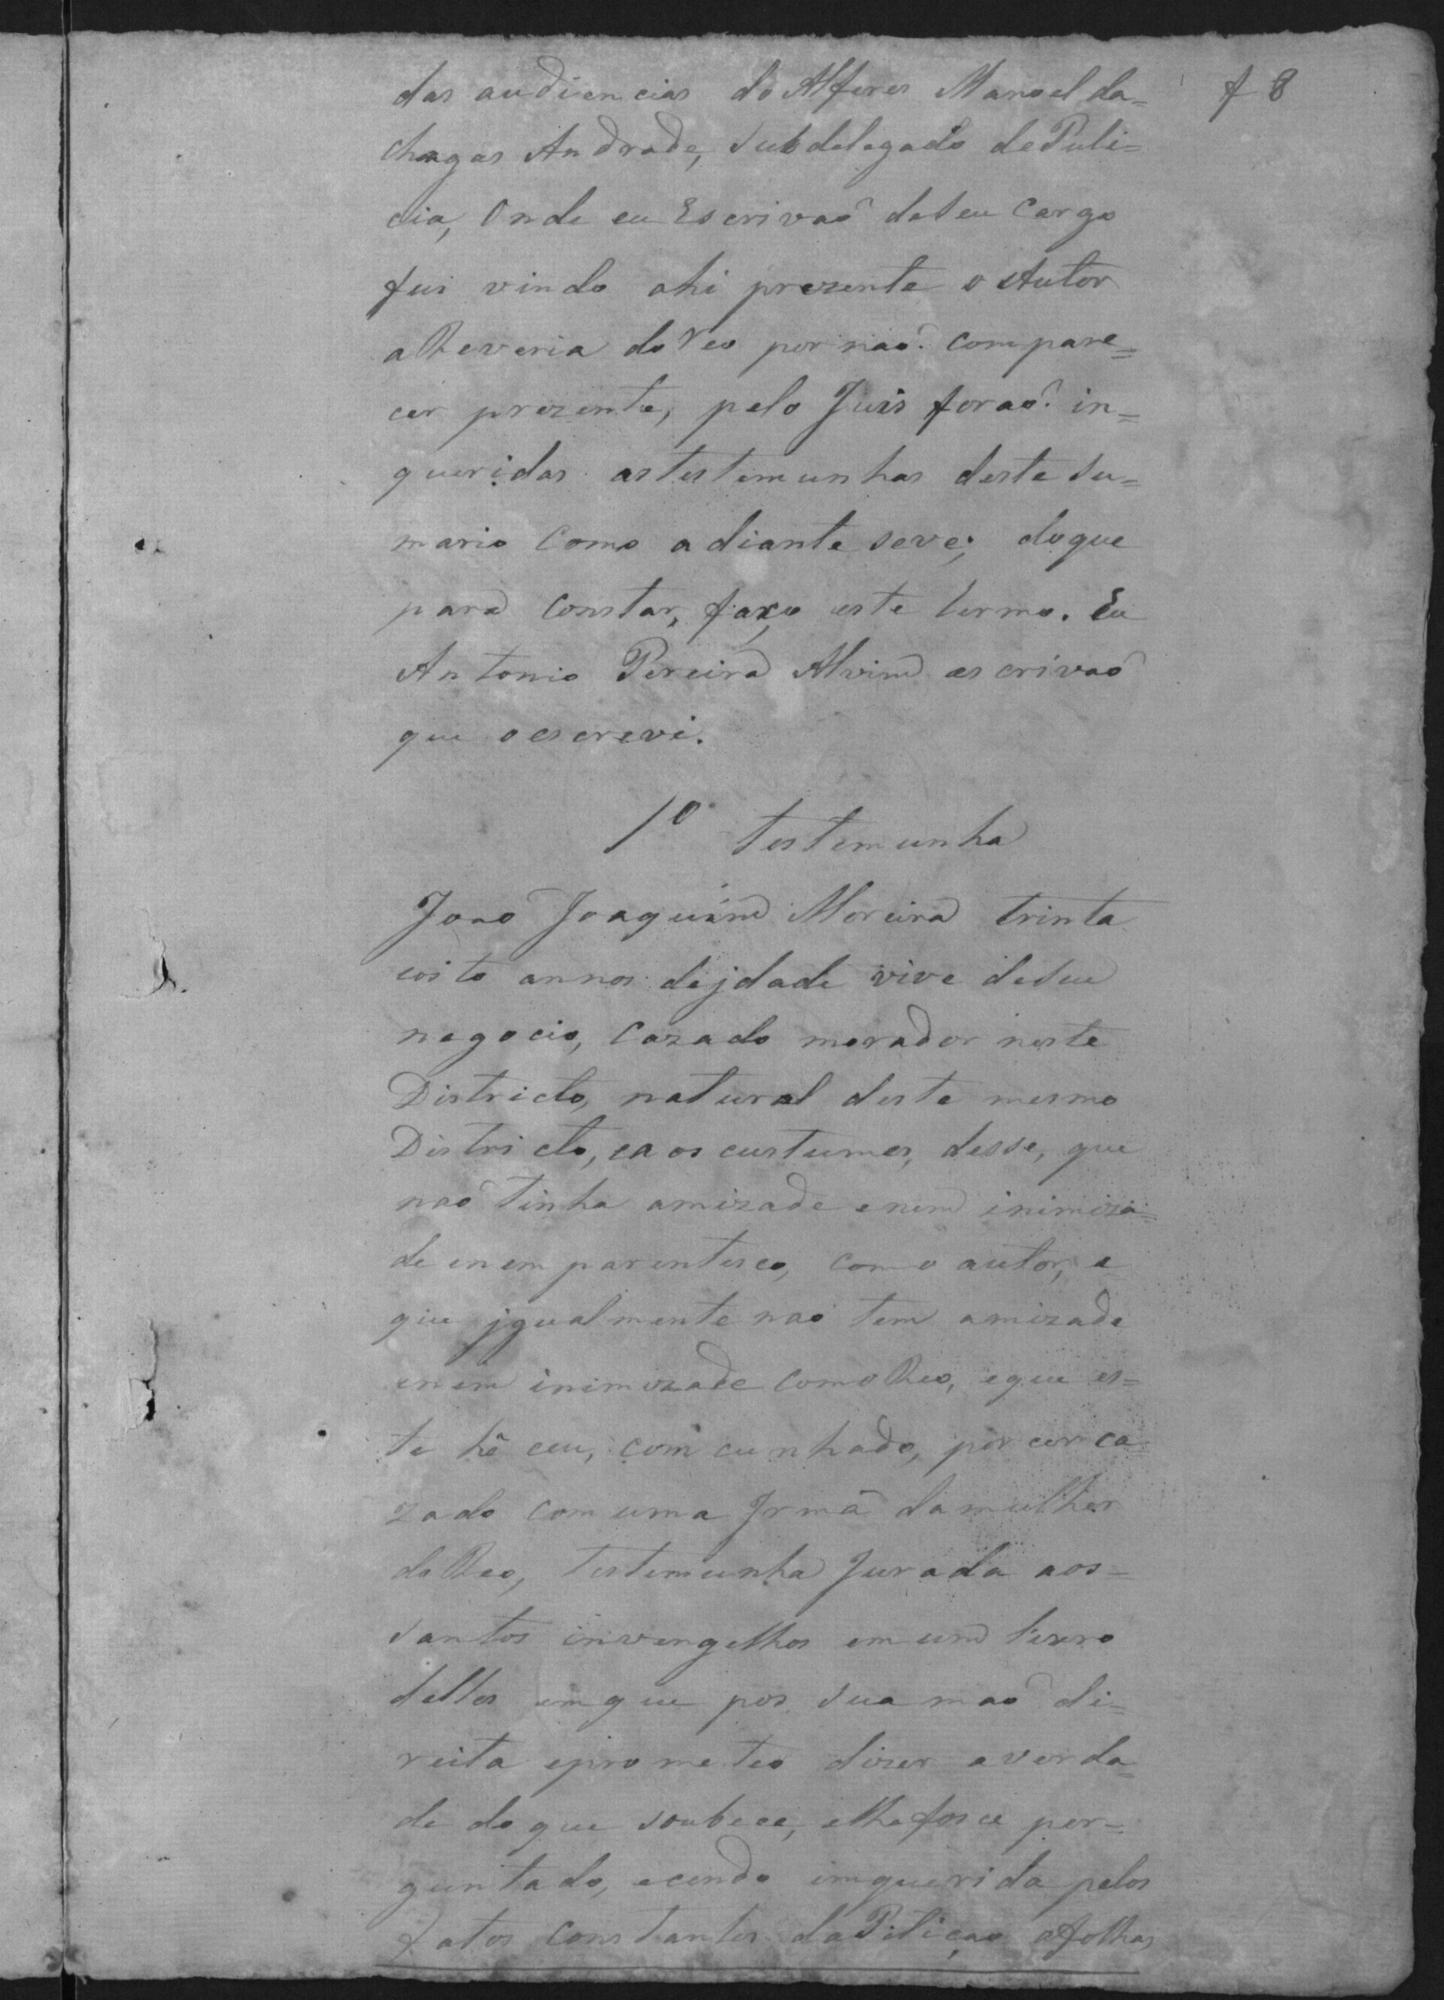 das audiencias do Alferes Manoel da= f 8
chagas Andrade, Subdelegado de Puli=
cia, Onde eu Escrivaõ deseu Cargo
fui vindo ahi prezente o Autor
a Reveria do reo por naõ compare=
cer prezente, pelo Juis foraõ in=
queridas as testemunhas deste Su=
mario Como adiante seve; doque
para Constar, faço este termo. Eu
Antonio Pereira Alvim escrivaõ
que o escrevi.
1º testemunha
Joao Joaquim Moreira trinta
eoito annos dejdade vive deseu
negocio, Cazado morador neste
Districto, natural deste mesmo
Districto, eaos custumes, desse, que
naõ tinha amizade enem inimiza=
de enem parentesco, como autor, e
que jgualmente naõ tem amizade
enem inimizade Com o Reo, eque es=
te hê ceu, com cunhado, por cer ca
zado com uma Jrmã da mulher
do Reo, testemunha Jurada aos=
Santos invengelhos em um livro
delles emque pos sua maõ di=
reita eprometeo dizer averda=
de do que soubece, elhe fosce per=
guntado, ecendo imquerida pelos
fatos Constantes da Pitiçaõ afolhas